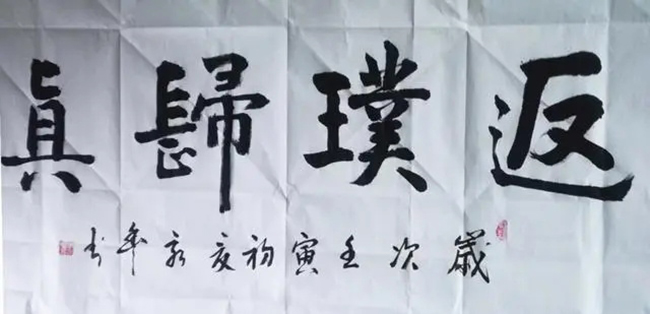 返璞歸真
歲次壬寅初夏
年书